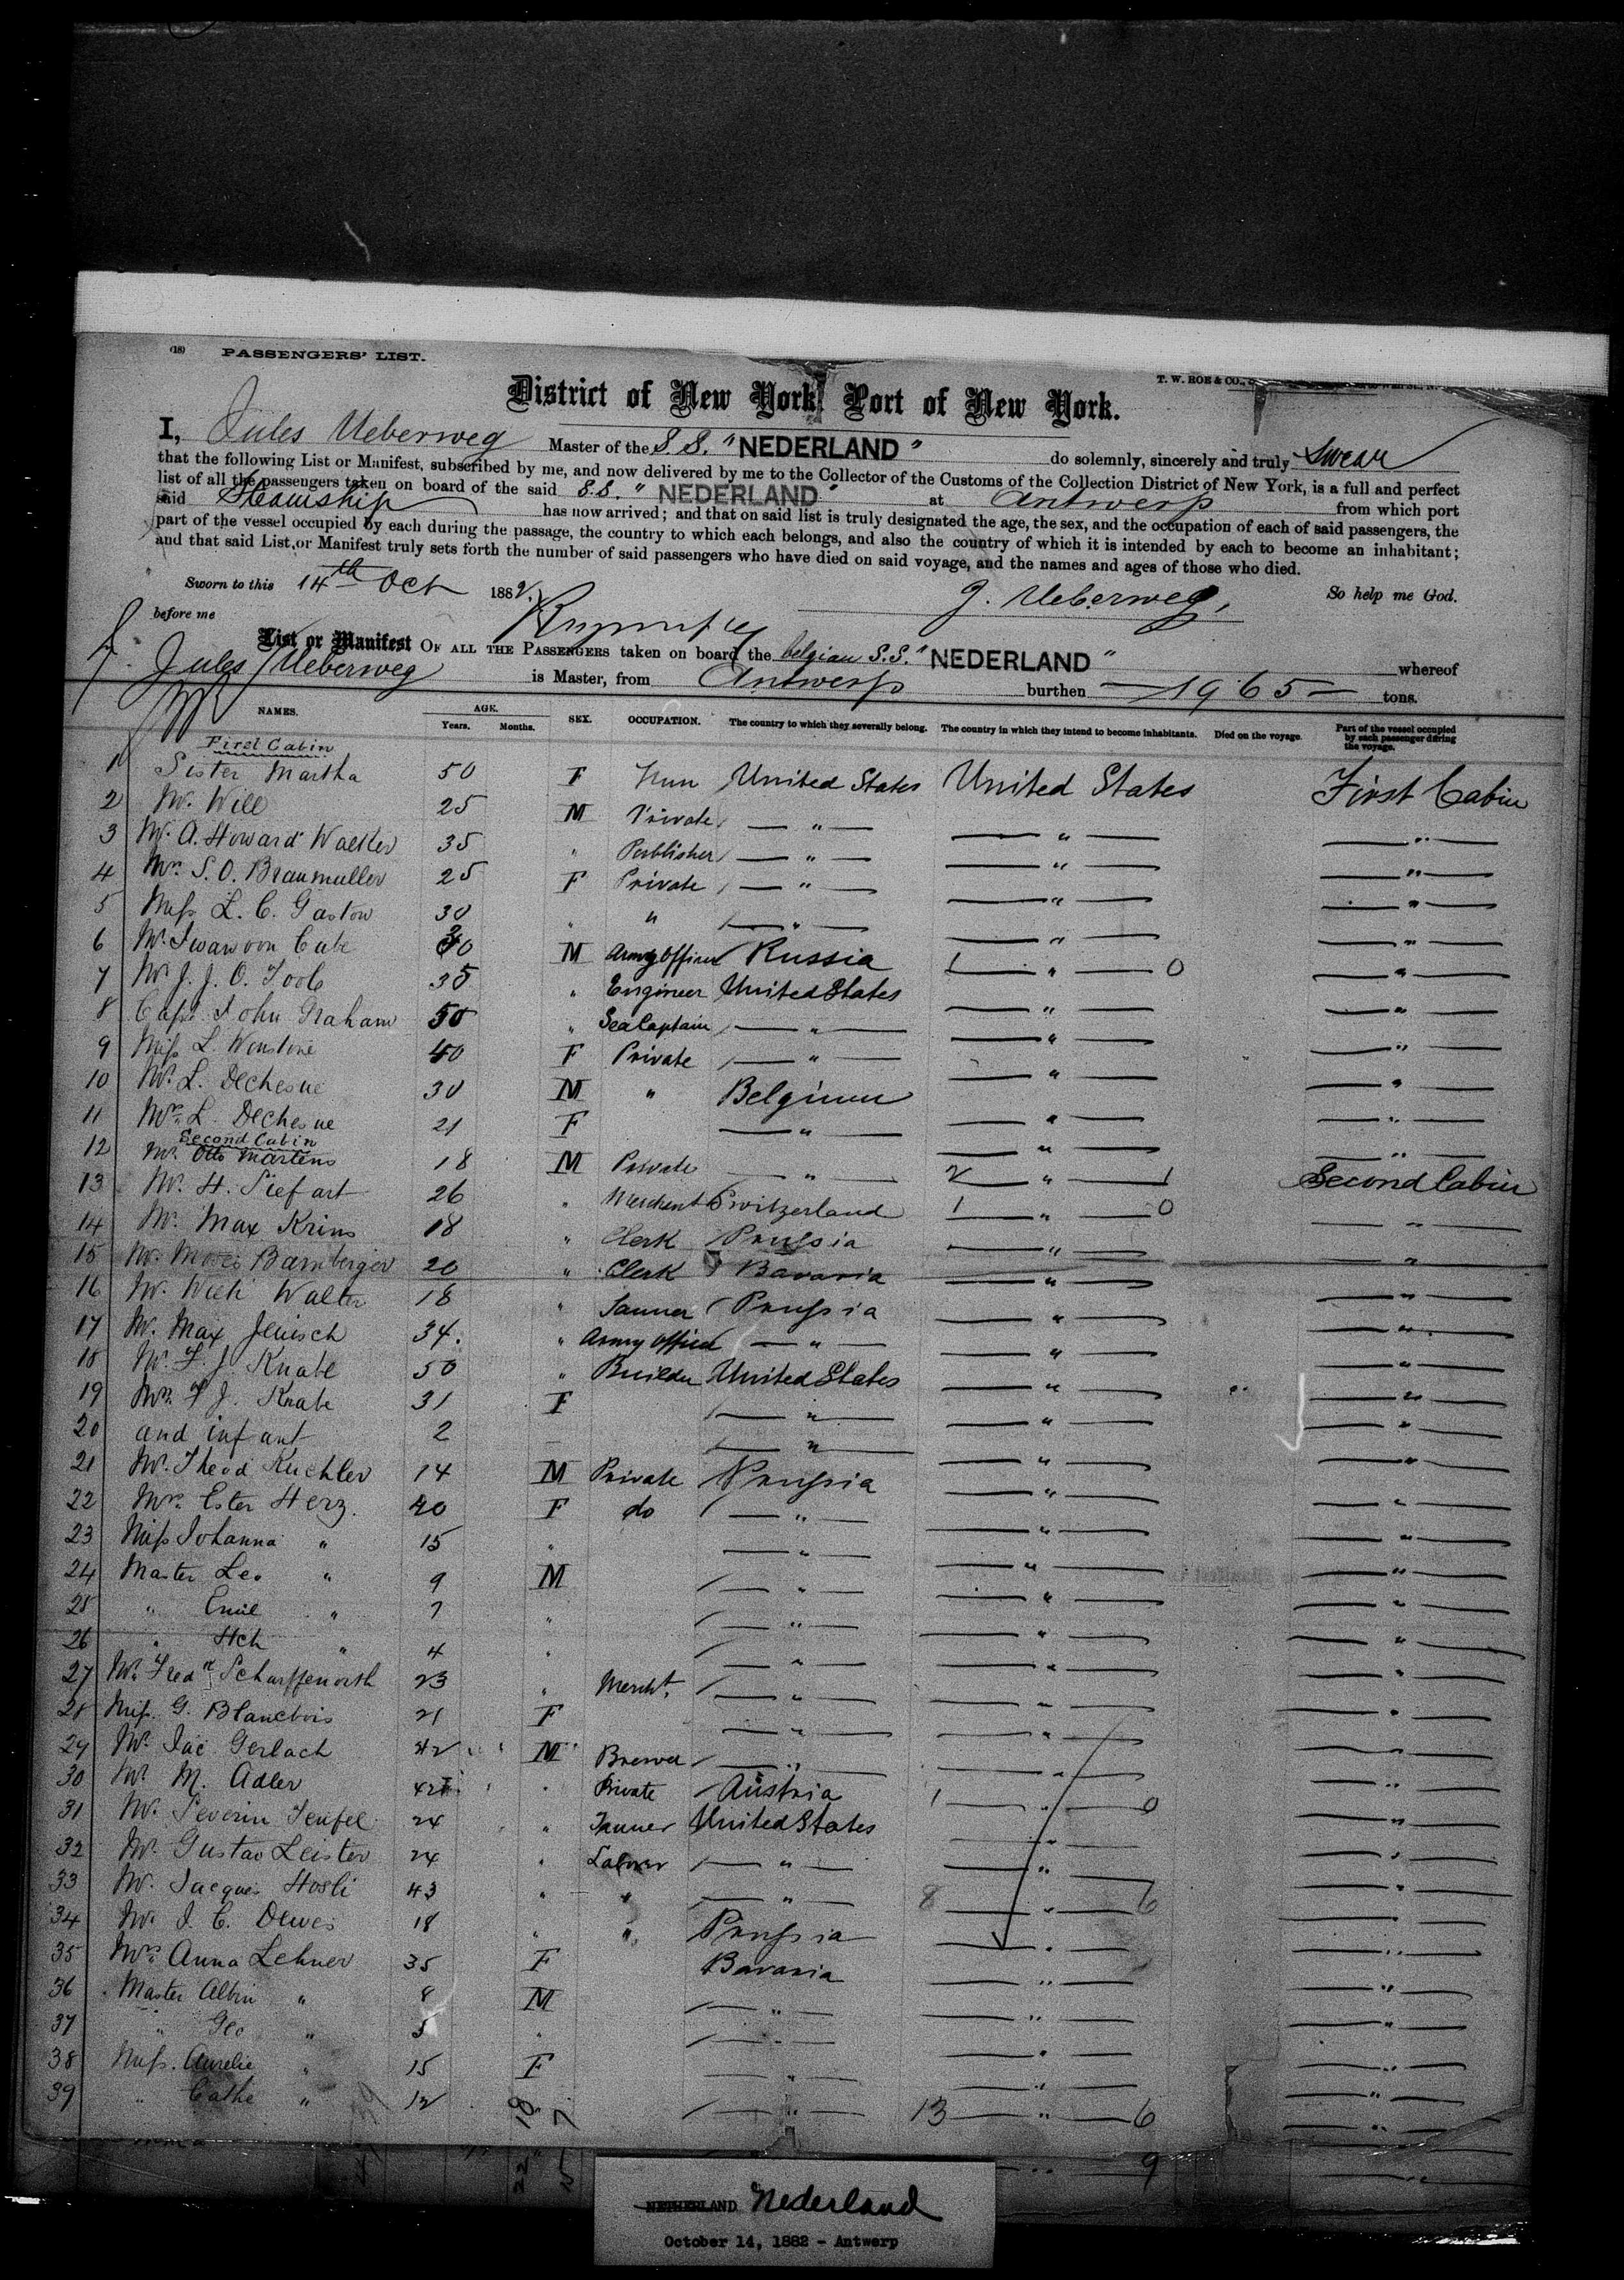 (18) PASSENGERS' LIST.
T. W. ROE & CO.,
District of New York Port of New York.
I, Jules Ueberweg Master of the S.S. "NEDERLAND" do solemnly, sincerely and truly swear
that the following List or Manifest, subscribed by me, and now delivered by me to the Collector of the Customs of the Collection District of New York, is a full and perfect
list of all the passengers taken on board of the said S.S. "NEDERLAND" at Antwerp from which port
said Steamship has now arrived; and that on said list is truly designated the age, the sex, and the occupation of each of said passengers, the
part of the vessel occupied by each during the passage, the country to which each belongs, and also the country of which it is intended by each to become an inhabitant;
and that said List or Manifest truly sets forth the number of said passengers who have died on said voyage, and the names and ages of those who died.
Sworn to this 14th Oct 1882. J. Ueberweg, So help me God.
before me
List or Manifest OF ALL THE PASSENGERS taken on board the belgian S.S. "NEDERLAND" whereof
Jules Ueberweg is Master, from Antwerp burthen — 1965 — tons.
NAMES. AGE. Years. Months. SEX. OCCUPATION. The country to which they severally belong. The country in which they intend to become inhabitants. Died on the voyage. Part of the vessel occupied by each passenger during the voyage.
First Cabin
1 Sister Martha 50 F Nun United States United States First Cabin
2 Mr. Will 25 M Private — " — — " — — " —
3 Mr. A. Howard Walker 35 " Publisher — " — — " — — " —
4 Mrs. S. O. Braumuller 25 F Private — " — — " — — " —
5 Miss L. C. Gaston 30 " " — " — — " — — " —
6 Mr. Iwan von Cube 30 M Army Officer Russia 1 — " — 0 — " —
7 Mr J. J. O. Toole 35 " Engineer United States — " — — " —
8 Capt. John Graham 50 " Sea Captain — " — — " — — " —
9 Miss L. Winstone 40 F Private — " — — " — — " —
10 Mr. L. Dechesne 30 M " Belgium — " — — " —
11 Mrs. L. Dechesne 21 F — " — — " — — " —
Second Cabin
12 Mr. Otto Martens 18 M Private — " — 2 — " — 1 Second Cabin
13 Mr. H. Siefart 26 " Merchant Switzerland 1 — " — 0 — " —
14 Mr. Max Krins 18 " Clerk Prussia — " — — " —
15 Mr. Moses Bamberger 20 " Clerk Bavaria — " — — " —
16 Mr. Willi Walter 18 " Tanner Prussia — " — — " —
17 Mr. Max Jenisch 34. " Army Officer — " — — " — — " —
18 Mr. F. J. Knabe 50 " Builder United States — " — — " —
19 Mrs. F. J. Knabe 31 F — " — — " — — " —
20 and infant 2 — " — — " — — " —
21 Mr. Theod Kuchler 14 M Private Prussia — " — — " —
22 Mrs. Ester Herz. 40 F do — " — — " — — " —
23 Miss Johanna " 15 " — " — — " — — " —
24 Master Leo " 9 M — " — — " — — " —
25 " Emil " 7 " — " — — " — — " —
26 " Hch " 4 " — " — — " — — " —
27 Mr. Fredr. Scharffenorth 23 " Mercht. — " — — " — — " —
28 Miss. G. Blancbois 21 F — " — — " — — " —
29 Mr. Jac Gerlach 42 M Brewer — " — — " — — " —
30 Mr M. Adler 42 " Private Austria 1 — " — 0 — " —
31 Mr. Severin Teufel 24 " Tanner United States — " — — " —
32 Mr. Gustav Leister 24 " Laborer — " — — " — — " —
33 Mr. Jacques Hosli 43 " " — " — 8 — " — 6 — " —
34 Mr. J. C. Dewes 18 " " Prussia — " — — " —
35 Mrs. Anna Lehner 35 F Bavaria — " — — " —
36 Master Albin " 8 M — " — — " — — " —
37 " Geo " 5 " — " — — " — — " —
38 Miss. Aurelie " 15 F — " — — " — — " —
39 " Cathe " 12 — " — 13 — " — 6 — " —
18 7
22 9
NETHERLAND Nederland
October 14, 1882 - Antwerp